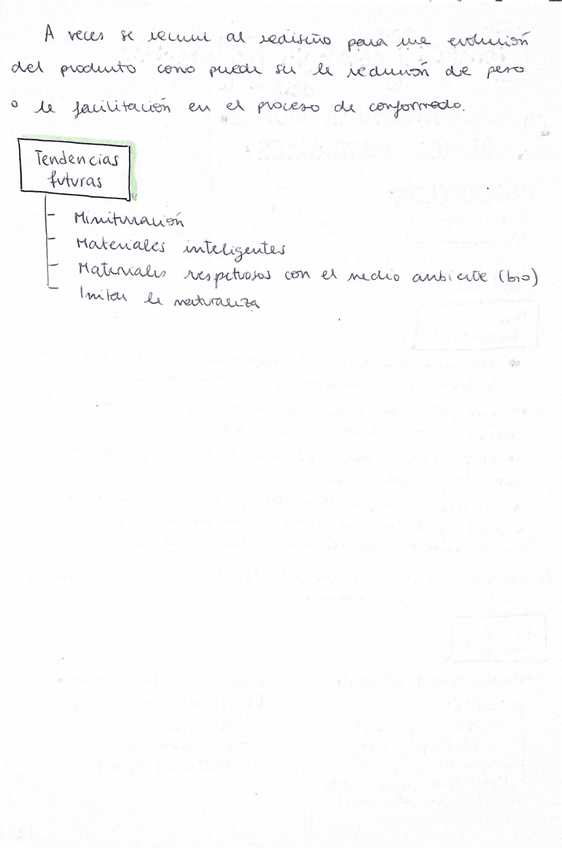 A veces se recurre al rediseño para una evolución
del producto como puede ser la reducción de peso
o la facilitación en el proceso de conformado.
Tendencias
futuras
- Miniturración
- Materiales inteligentes
- Materiales respetuosos con el medio ambiente (bio)
- Imitar la naturaleza